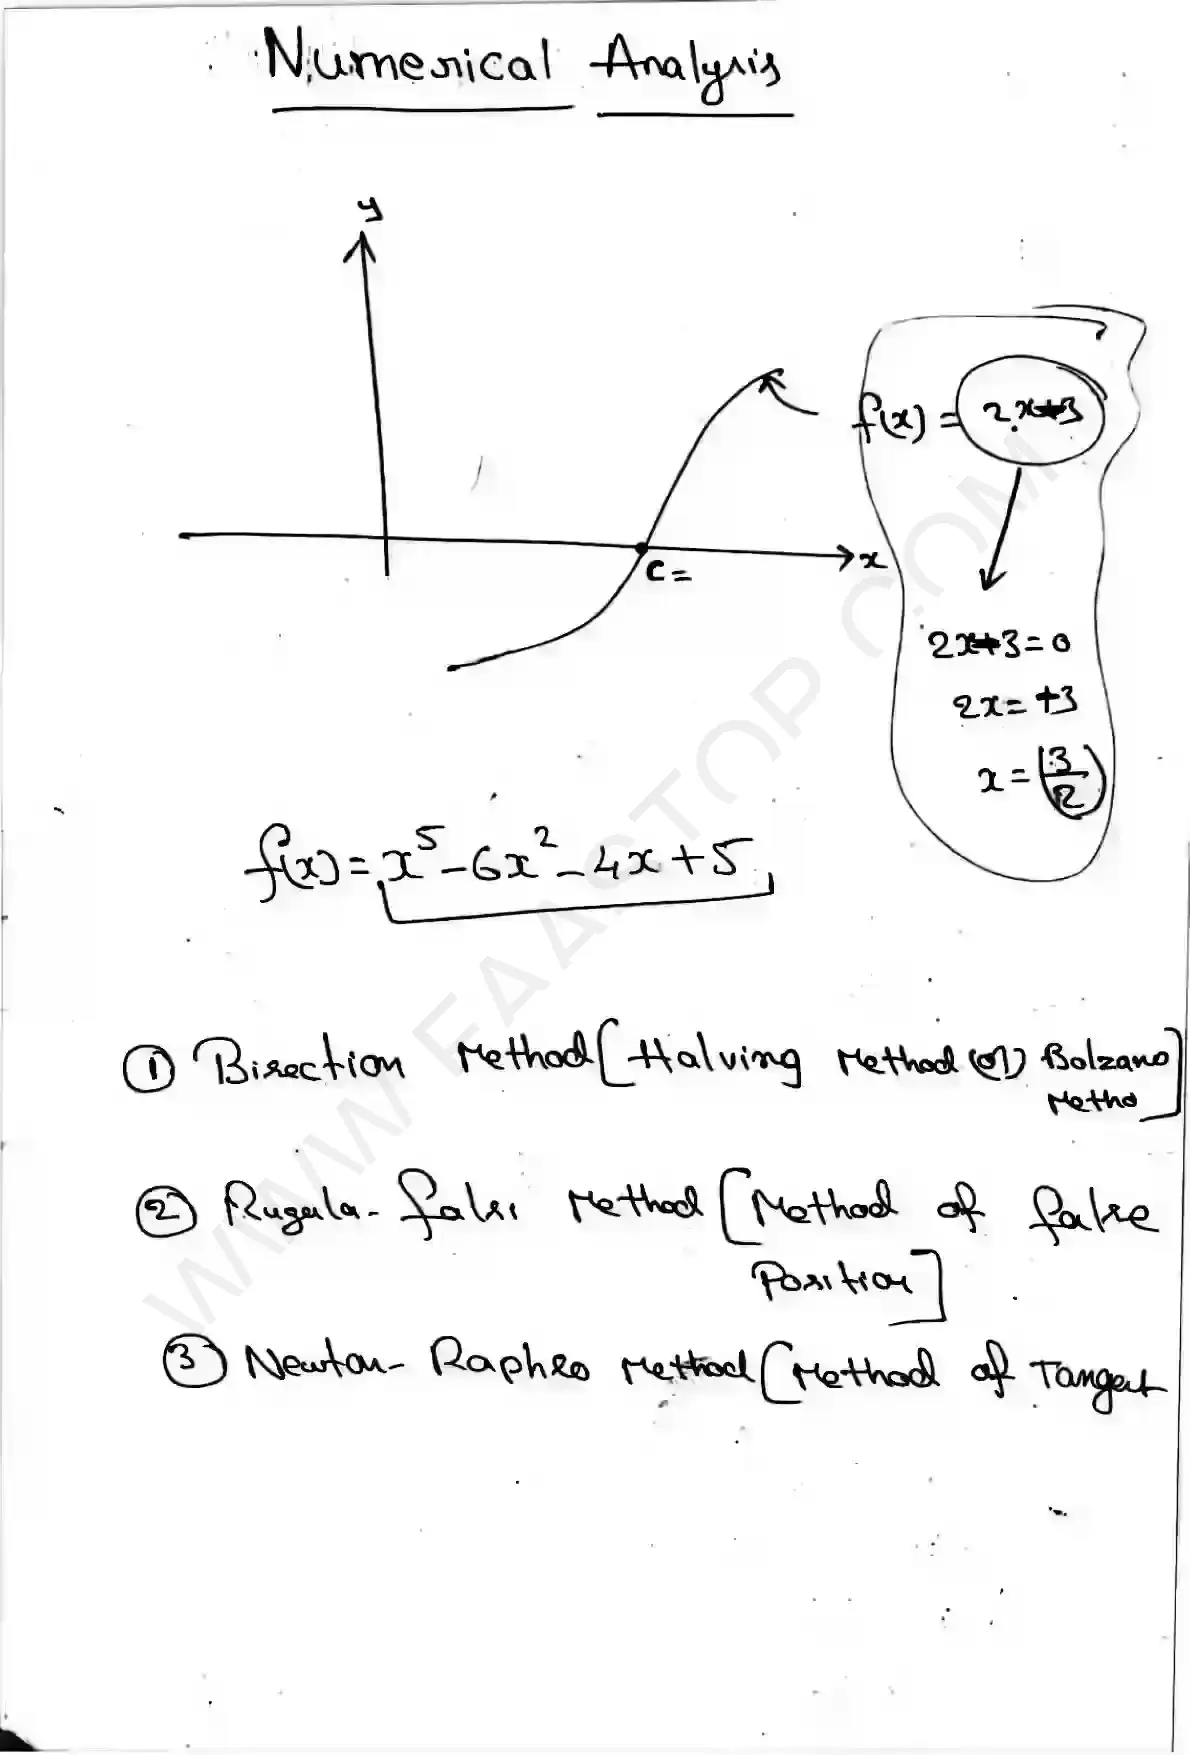 Numerical Analysis
y
f(x) = 2x-3
x
C =
2x-3=0
2x = +3
x = (3/2)
f(x) = x⁵-6x²-4x+5
① Bisection Method [Halving Method (or) Bolzano
Metho]
② Rugula-falsi Method [Method of false
Position]
③ Newton-Raphso Method [Method of Tangent
WWW.FAASTOP.COM